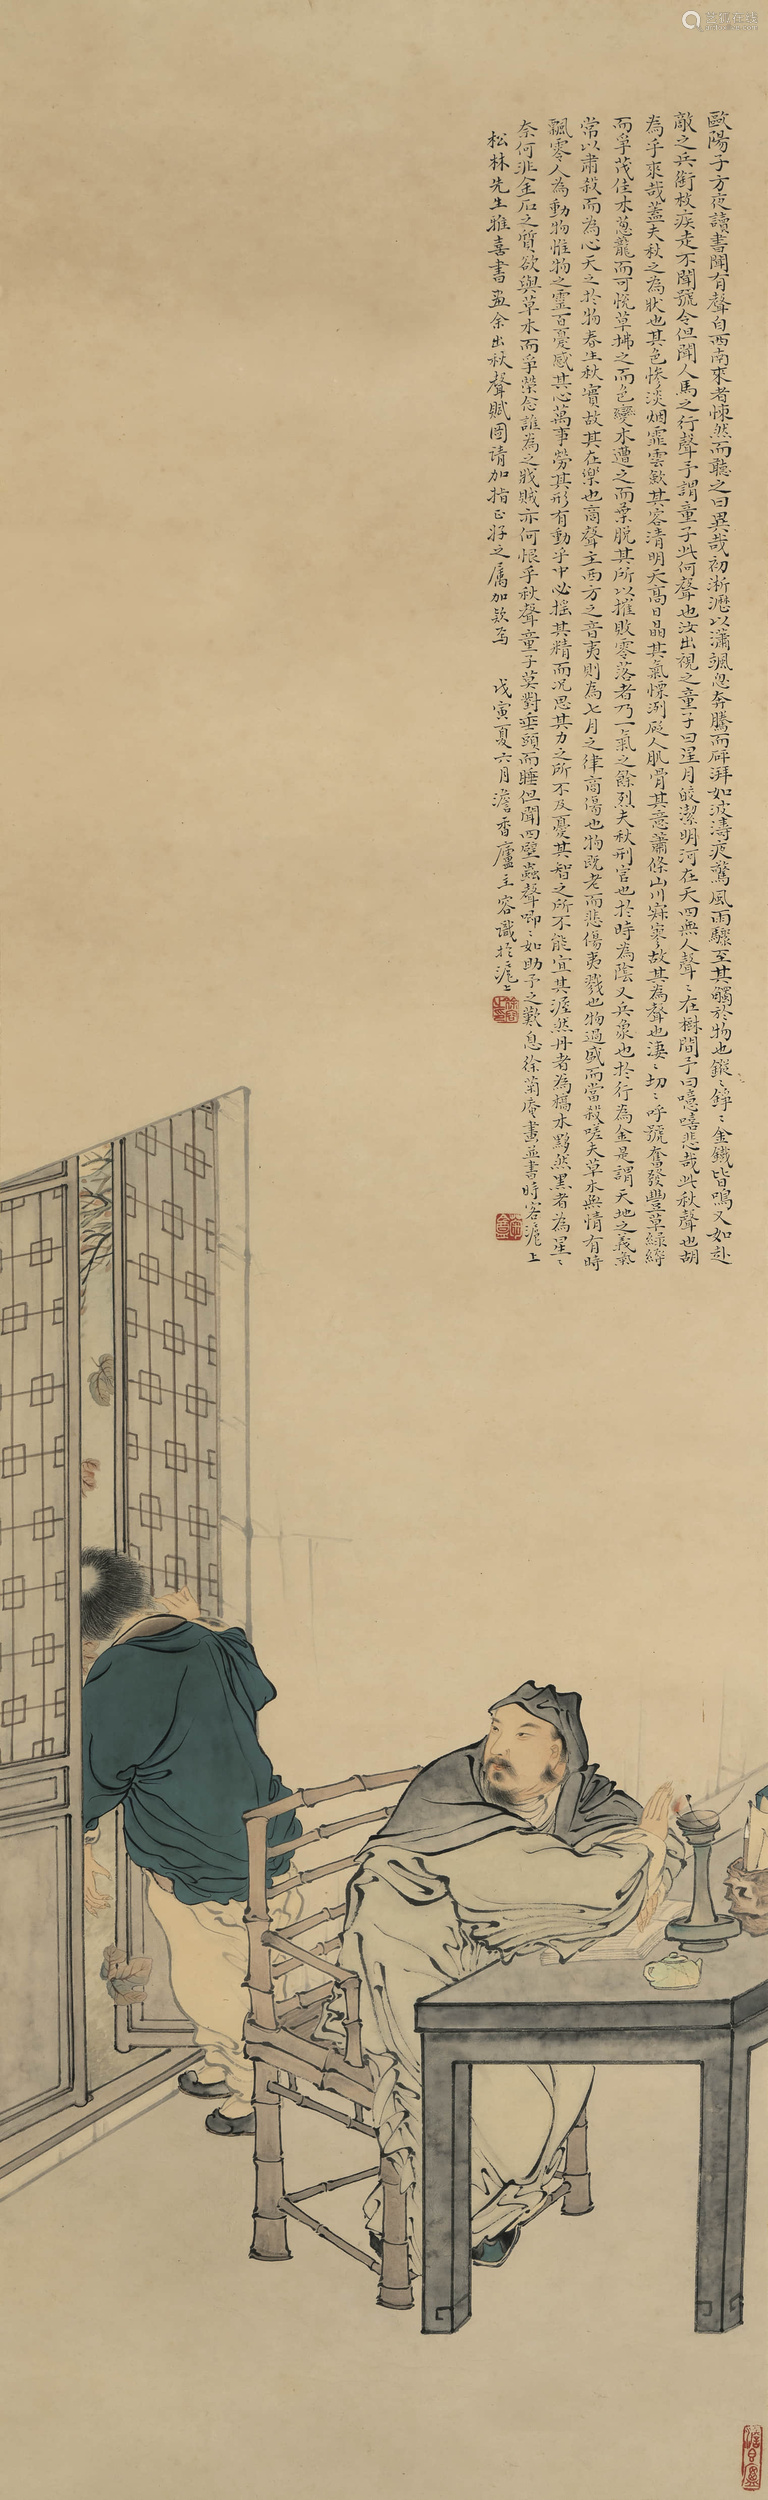 歐陽子方夜讀書聞有聲自西南來者悚然而聽之曰異哉初淅瀝以瀟颯忽奔騰而砰湃如波濤夜驚風雨驟至其觸於物也鏦〻錚〻金鐵皆鳴又如赴
敵之兵銜枚疾走不聞號令但聞人馬之行聲予謂童子此何聲也汝出視之童子曰星月皎潔明河在天四無人聲〻在樹間予曰噫嘻悲哉此秋聲也胡
為乎來哉蓋夫秋之為狀也其色慘淡烟霏雲歛其容清明天高日晶其氣慄冽砭人肌骨其意蕭條山川寂寥故其為聲也淒〻切〻呼號奮發豐草綠縟
而爭茂佳木葱蘢而可悅草拂之而色變木遭之而葉脫其所以摧敗零落者乃一氣之餘烈夫秋刑官也於時為陰又兵象也於行為金是謂天地之義氣
常以肅殺而為心天之於物春生秋實故其在樂也商聲主西方之音夷則為七月之律商傷也物既老而悲傷夷戮也物過盛而當殺嗟夫草木無情有時
飄零人為動物惟物之靈百憂感其心萬事勞其形有動乎中必搖其精而况思其力之所不及憂其智之所不能宜其渥然丹者為槁木黟然黑者為星〻
奈何非金石之質欲與草木而爭榮念誰為之戕賊亦何恨乎秋聲童子莫對垂頭而睡但聞四壁蟲聲唧〻如助予之歎息徐菊庵畫並書時客滬上
松林先生雅喜書畫余出秋聲賦圖请加指正好之属加欵焉
戊寅夏六月澹香廬主容識於滬上